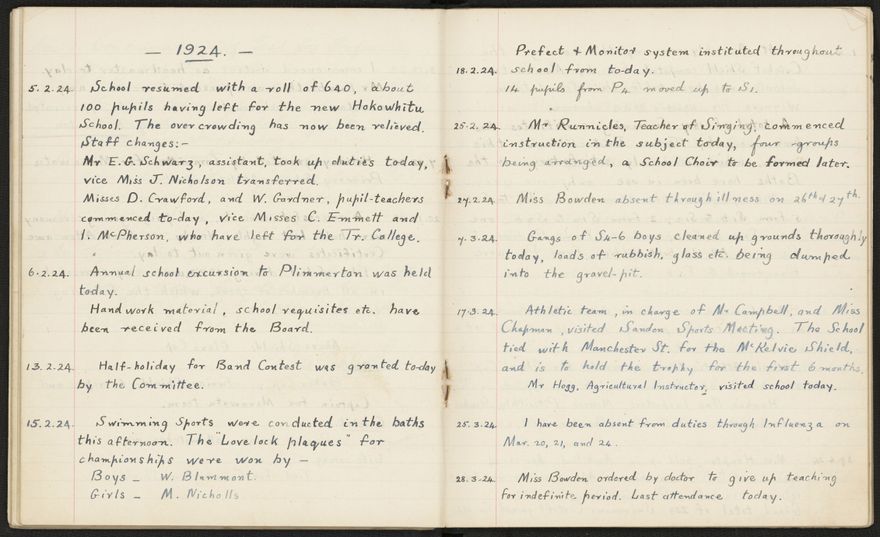 — 1924. —
5.2.24. School resumed with a roll of 640, about
100 pupils having left for the new Hokowhitu
School. The overcrowding has now been relieved.
Staff changes:-
Mr E.G. Schwarz, assistant, took up duties today,
vice Miss J. Nicholson transferred.
Misses D. Crawford, and W. Gardner, pupil-teachers
commenced to-day, vice Misses C. Emmett and
I. McPherson, who have left for the Tr. College.
6.2.24. Annual school excursion to Plimmerton was held
today.
Handwork material, school requisites etc. have
been received from the Board.
13.2.24. Half-holiday for Band Contest was granted to-day
by the Committee.
15.2.24. Swimming Sports were conducted in the baths
this afternoon. The "Lovelock plaques" for
championships were won by —
Boys – W. Blammont.
Girls – M. Nicholls
Prefect & Monitor system instituted throughout
18.2.24. school from to-day.
14 pupils from P4 moved up to S1.
25.2.24. Mr Runnicles, Teacher of Singing, commenced
instruction in the subject today, four groups
being arranged, a School Choir to be formed later.
27.2.24. Miss Bowden absent through illness on 26th & 27th.
7.3.24. Gangs of S4-6 boys cleaned up grounds thoroughly
today, loads of rubbish, glass etc. being dumped
into the gravel-pit.
17.3.24. Athletic team, in charge of Mr Campbell, and Miss
Chapman, visited Sandon Sports Meeting. The School
tied with Manchester St. for the McKelvie Shield,
and is to hold the trophy for the first 6 months.
Mr Hogg, Agricultural Instructor, visited school today.
25.3.24. I have been absent from duties through Influenza on
Mar. 20, 21, and 24.
28.3.24. Miss Bowden ordered by doctor to give up teaching
for indefinite period. Last attendance today.